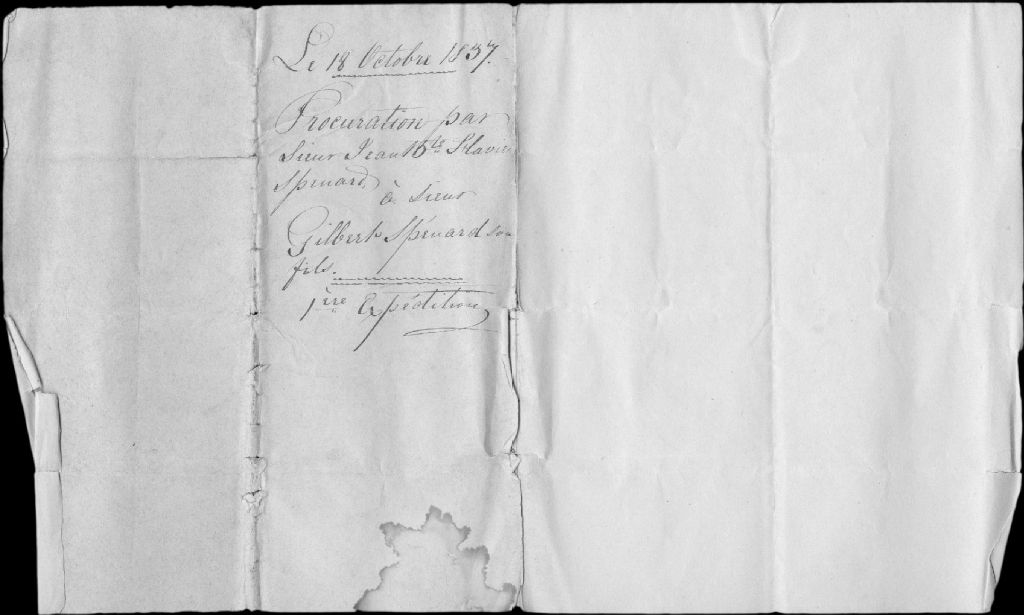 Le 18 Octobre 1837.
Procuration par
Sieur Jean Bte Flavien
Spénard,
à Sieur
Gilbert Spénard son
fils.
1ère Expédition